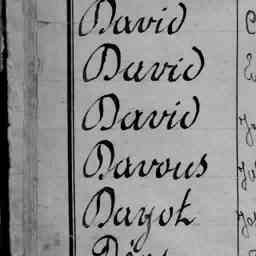 David
David
David
Davous
Dayot